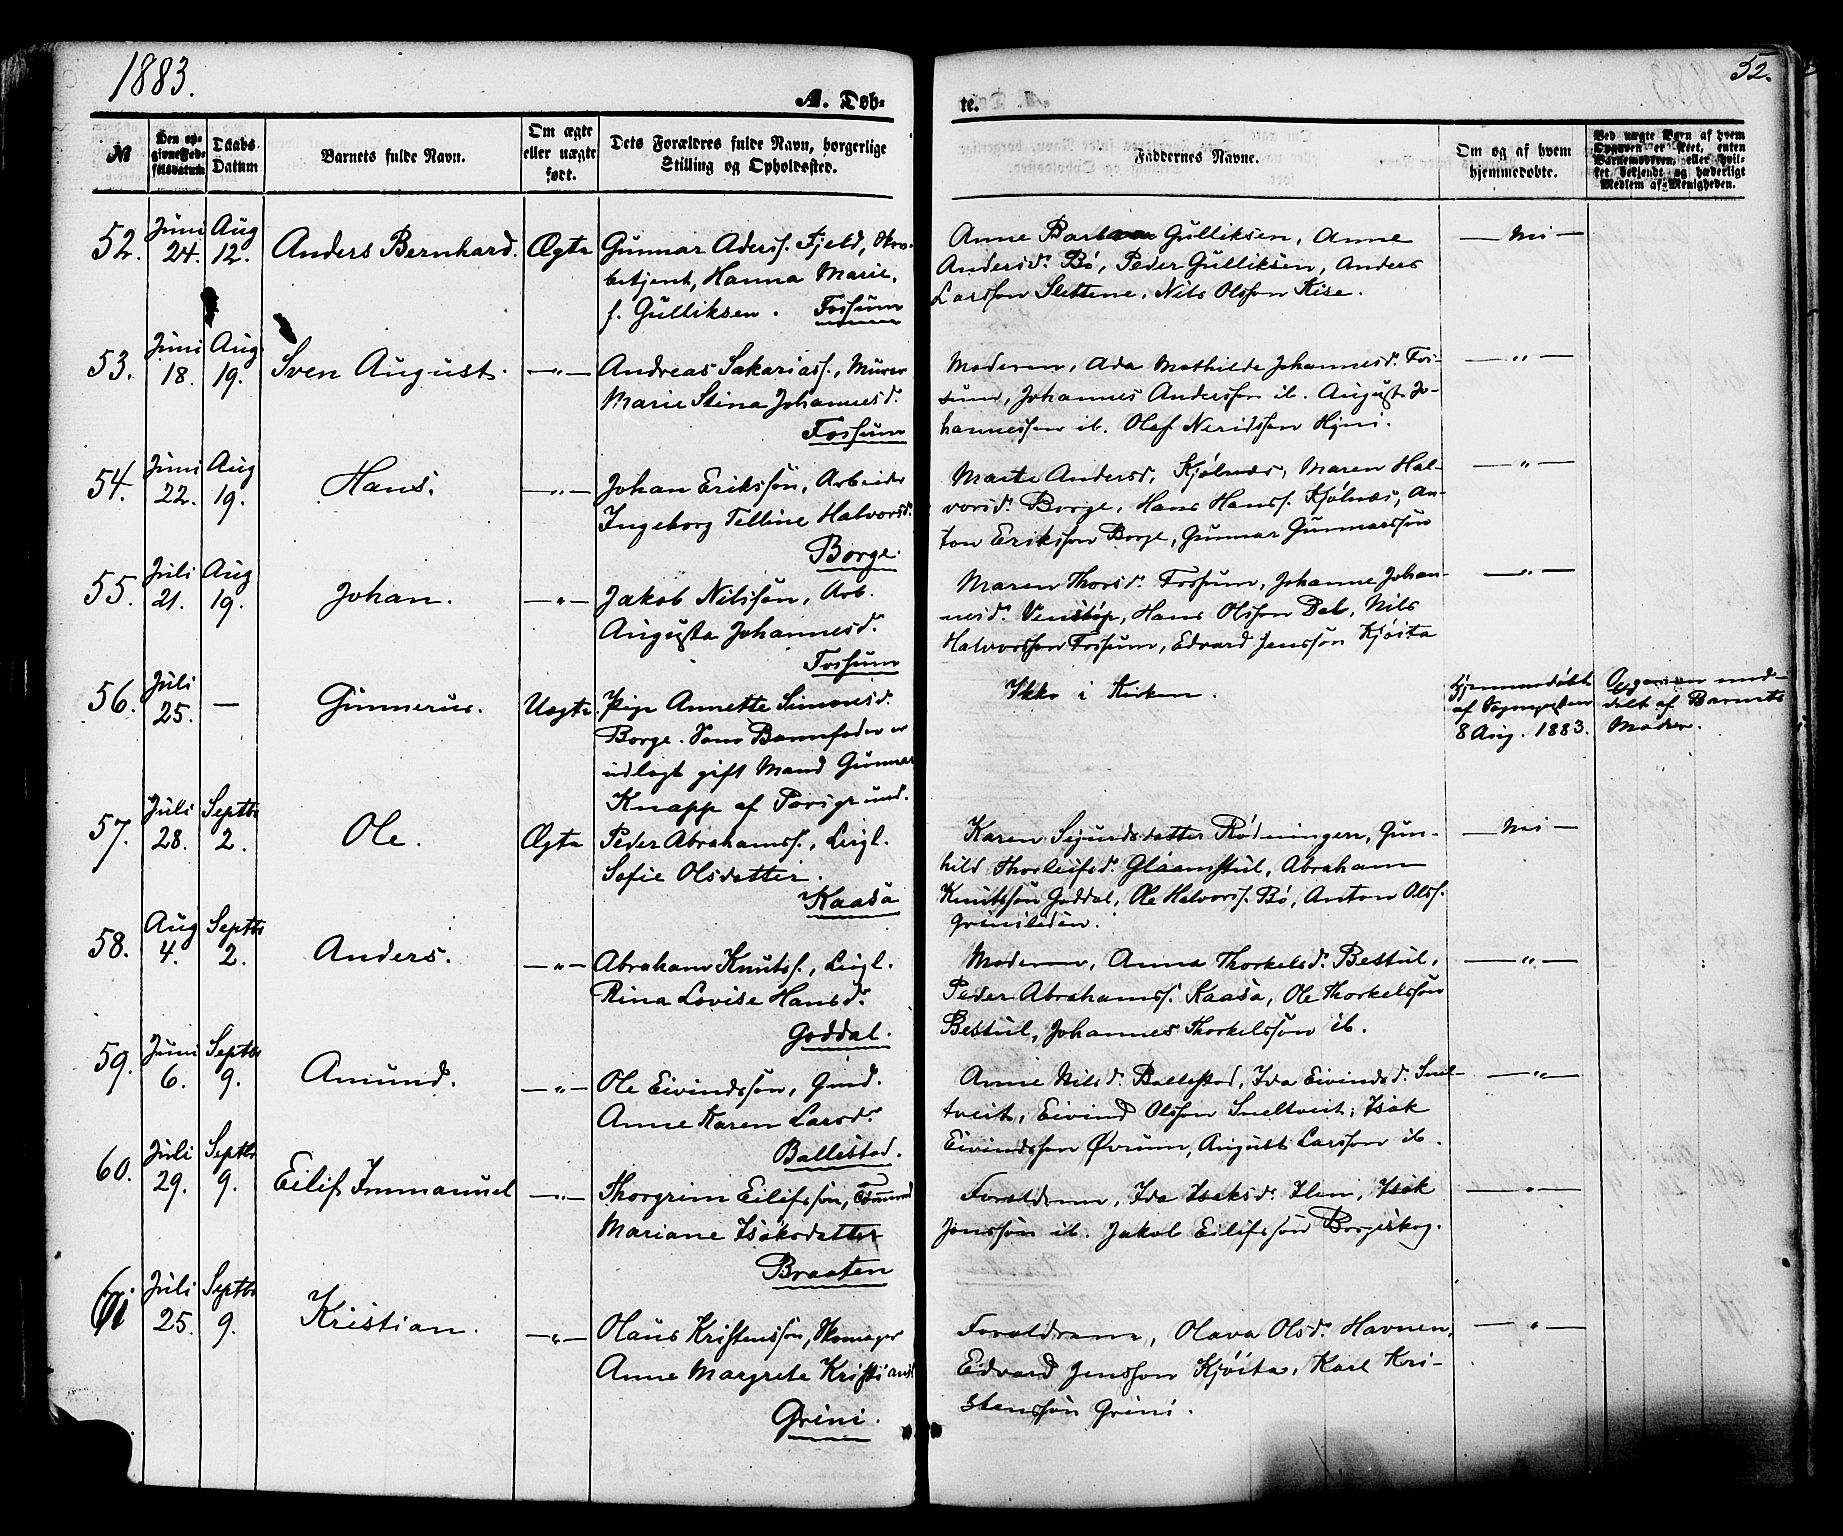 1883.
52.
A. Døb-
te.
№
Den op-
givne Fød-
selsdatum
Daabs
Datum
Barnets fulde Navn.
Om ægte
eller uægte
født.
Dets Forældres fulde Navn, borgerlige
Stilling og Opholdssted.
Faddernes Navne.
Om og af hvem
hjemmedøbte.
Ved uægte Børn af hvem
Opgaven er skeet, enten
Barnemoderen, eller hvil-
ket bekjendt og hæderligt
Medlem af Menigheden.
52. Juni 24. Aug 12. Anders Bernhard. Ægte
Gunnar Aderss. Fjeld,
betjent, Hanna Marie,
f. Gulliksen. Fossum
Anne Barbara Gulliksen, Anne
Andersd. Bö, Peder Gulliksen, Anders
Larsson Slettene, Nils Olsson Aise.
— Nei —
53. Juni 18. Aug. 19. Sven August. —〃—
Andreas Sakariass., Murer
Marie Stina Johannesd.
Fossum
Moderen, Ada Mathilde Johannesd. Fos-
sum, Johannes Andersson ib. August Jo-
hannesson ib. Olaf Neridsson Hyni.
—〃—
54. Juni 22. Aug 19. Hans. —〃—
Johan Eriksson, Arbeider
Ingeborg Telline Halvorsd.
Borge.
Marte Andersd. Kjölnæs, Maren Hal-
vorsd. Borge, Hans Hanss. Kjölnæs, An-
ton Eriksson Borge, Gunnar Gunnarssön
—〃—
55. Juli 21. Aug 19. Johan. —〃—
Jakob Nilssön, Arb.
Augusta Johannesd.
Fossum
Maren Thorsd. Fossum, Johanne Johan-
nesd. Venstöp, Hans Olsson Dal, Nils
Halvorsson Fossum, Edvard Jenssön Kjöita
—〃—
56. Juli 25. — Gunnerius. Uægte
Pige Annette Simonsd.
Borge. Som Barnefader er
udlagt gift Mand Gunnar
Knapp af Porsgrund.
Ikke i Kirken.
Hjemmedöbt
af Sognepresten
8 Aug. 1883.
Opgaven med-
delt af Barnets
Moder.
57. Juli 28. Septbr 2. Ole. Ægte
Peder Abrahamss., Leigl.
Sofie Olsdatter.
Kaasa
Karen Sjurdsdatter Rödningen, Gun-
hild Thorleifsd. Glaamstul, Abraham
Knutssön Goddal, Ole Halvorss. Bö, Anton Olss.
Grinilien.
— Nei —
58. Aug 4. Septbr 2. Anders. —〃—
Abraham Knutss., Leigl.
Rina Lovise Hansd.
Goddal.
Moderen, Anna Thorkelsd. Bestul,
Peder Abrahamss. Kaasa, Ole Thorkelssön
Bestul, Johannes Thorkelssön ib.
—〃—
59. Juni 6. Septbr 9. Amund. —〃—
Ole Eivindssön, Gmd.
Anne Karen Larsd.
Ballestad.
Anne Nilsd. Ballestad, Ida Eivindsd. Snel-
tveit, Eivind Olsson Sneltveit, Isak
Eivindsson Øvrum, August Larsson ib.
—〃—
60. Juli 29. Septbr 9. Eilif Immanuel —〃—
Thorgrim Eilifssön, Tömmerm
Mariane Isaksdatter
Braaten
Forældrene, Ida Isaksd. Ilen, Isak
Jonssön ib. Jakob Eilifssön Borgeskog.
—〃—
61 Juli 25. Septbr 9. Kristian. —〃—
Olaus Kristenssön,
Anne Margrete Kristiansd.
Grini.
Forældrene, Olava Olsd. Havnen,
Edvard Jensson Kjöita, Karl Kri-
stenssön Grini.
—〃—